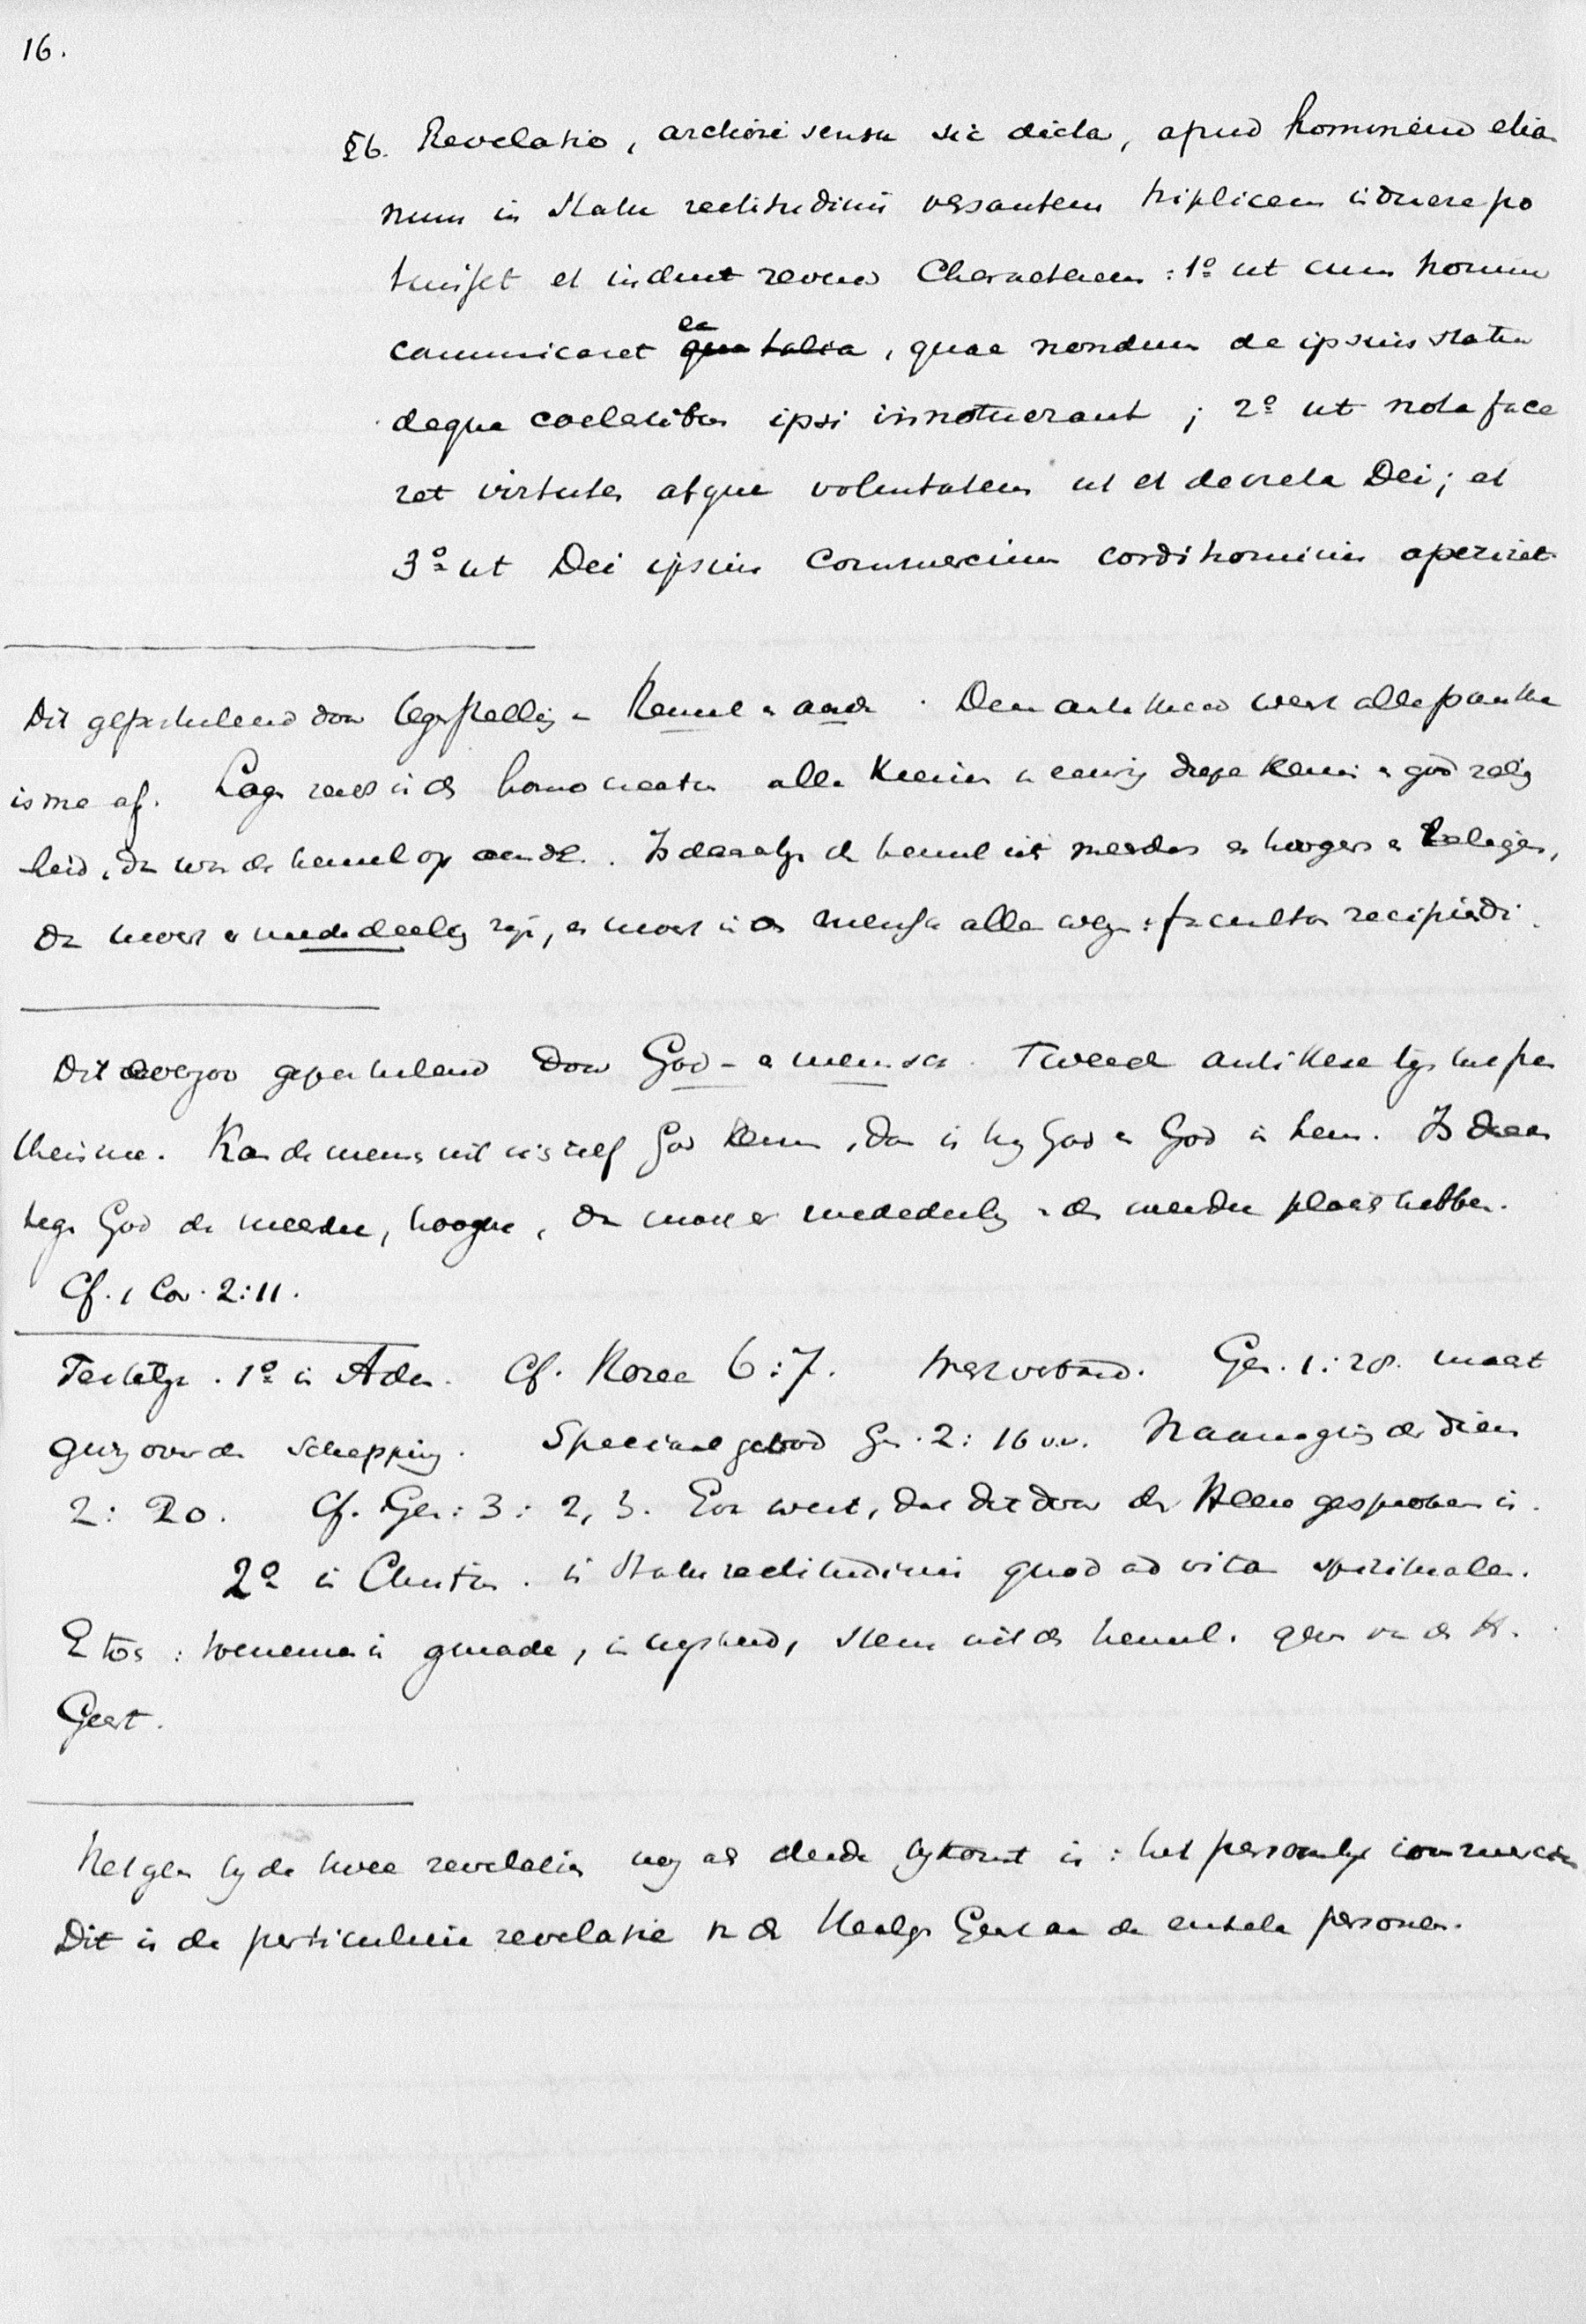 16.
§6. Revelatio, arctiori sensu sic dicta, apud hominem etia
num in statu rectitudinis versantem triplicem induere po
tuisset et induit revera Characterem: 1º ut cum homine
communicaret ea qua talia, quae nondum de ipsius statu
deque coelestibus ipsi innotuerant; 2º ut nota face
ret virtutes atque voluntatem ut et decreta Dei; et
3º ut Dei ipsius Commercium cordi hominis aperiret
Dit gepostuleerd door tegenstelling Hemel en aarde. Den antithese werpt alle panthe
isme af. Lag reeds in den homo creatus alle kiemen eeuwig diepe kennis en godzalig
heid, dan was de hemel op aarde. Is daarentegen de hemel iets meerders en hoogers en zaligers,
dan moest er mededeeling zijn, en moest in den mensch alle wegen: facultas recipiendi.
Dit evenzoo gepostuleerd door God en mensch. Tweede antithese tegen het pan
theisme. Kan de mensch uit zich zelf God kennen, dan is hij God en God in hem. Is daaren
tegen God de meerdere, hoogere, dan moet er mededeeling des meerdere plaats hebben.
Cf. 1 Cor. 2:11.
Feitelijk. 1º in Adam. Cf. Hosea 6:7. Werkverbond. Gen. 1:28. maat
gezag over de Schepping. Speciaal gebod Gen. 2:16 vv. Naamgeving der dieren
2:20. Cf. Gen: 3: 2, 3. Eva weet, dat dit door den Heere gesproken is.
2º in Christus. in statu rectitudinis quod ad vitam spiritualem.
En toch: toenemen in genade, in wijsheid, stem uit den hemel. gave van den H.
Geest.
Hetgeen bij de twee revelaties nog als derde bijkomt is: het persoonlijk commercium
Dit is de particuliere revelatie van den Heilige Geest aan de enkele personen.